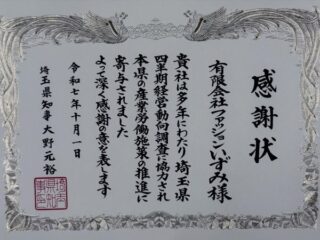 感謝状
有限会社ファッションいずみ様
貴社は多年にわたり埼玉県
四半期経営動向調査に協力され
本県の産業労働施策の推進に
寄与されました
よって深く感謝の意を表します
令和七年十月一日
埼玉県知事 大野元裕
埼玉県知事印